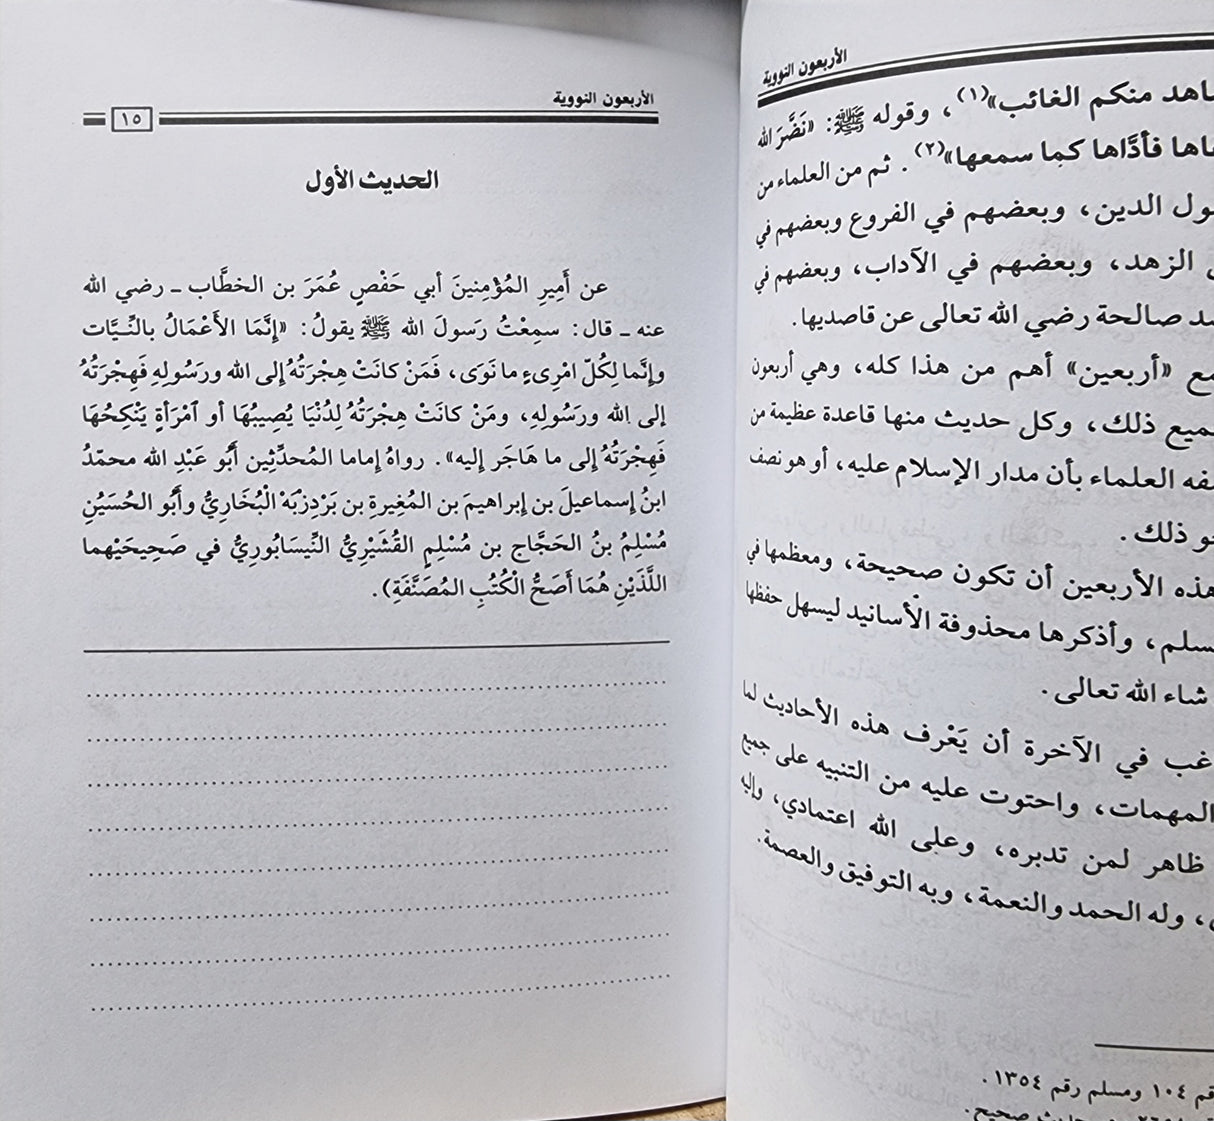 الأربعون النووية
اهد منكم الغائب»(١)، وقوله ﷺ: «نَضَّرَ الله
اها فأدَّاها كما سمعها»(٢). ثم من العلماء من
ول الدين، وبعضهم في الفروع وبعضهم في
الزهد، وبعضهم في الآداب، وبعضهم في
صد صالحة رضي الله تعالى عن قاصديها.
مع «أربعين» أهم من هذا كله، وهي أربعون
ميع ذلك، وكل حديث منها قاعدة عظيمة من
فه العلماء بأن مدار الإسلام عليه، أو هو نصف
و ذلك.
هذه الأربعين أن تكون صحيحة، ومعظمها في
سلم، وأذكرها محذوفة الأسانيد ليسهل حفظها
شاء الله تعالى.
غب في الآخرة أن يَعْرف هذه الأحاديث لما
المهمات، واحتوت عليه من التنبيه على جميع
ظاهر لمن تدبره، وعلى الله اعتمادي، وإليه
، وله الحمد والنعمة، وبه التوفيق والعصمة.
قم ١٠٤ ومسلم رقم ١٣٥٤.
حديث صحيح.
الأربعون النووية
١٥
الحديث الأول
عن أَمِيرِ المُؤْمِنينَ أبي حَفْصٍ عُمَرَ بن الخطَّاب ـ رضي الله
عنه ـ قال: سمِعْتُ رَسولَ الله ﷺ يقولُ: «إنَّمَا الأَعْمَالُ بالنِّيَّات
وإنَّما لِكُلّ امْرِىءٍ ما نَوَى، فَمَنْ كانَتْ هِجْرَتُهُ إلى الله ورَسُولِهِ فَهِجْرَتُهُ
إلى الله ورَسُولِهِ، ومَنْ كانَتْ هِجْرَتُهُ لِدُنْيَا يُصِيبُهَا أو ٱمْرَأةٍ يَنْكِحُهَا
فَهِجْرَتُهُ إلى ما هَاجَر إليه». رواهُ إماما المُحدِّثِين أَبُو عَبْدِ الله محمّدُ
ابنُ إسماعيلَ بن إبراهيمَ بن المُغِيرةِ بن بَرْدِزْبَهْ الْبُخَارِيُّ وأَبُو الحُسَيْنِ
مُسْلِمُ بنُ الحَجَّاج بن مُسْلِمٍ القُشَيْرِيُّ النِّيسَابُورِيُّ في صَحِيحَيْهما
اللَّذَيْنِ هُمَا أَصَحُّ الْكُتُبِ المُصَنَّفَةِ).